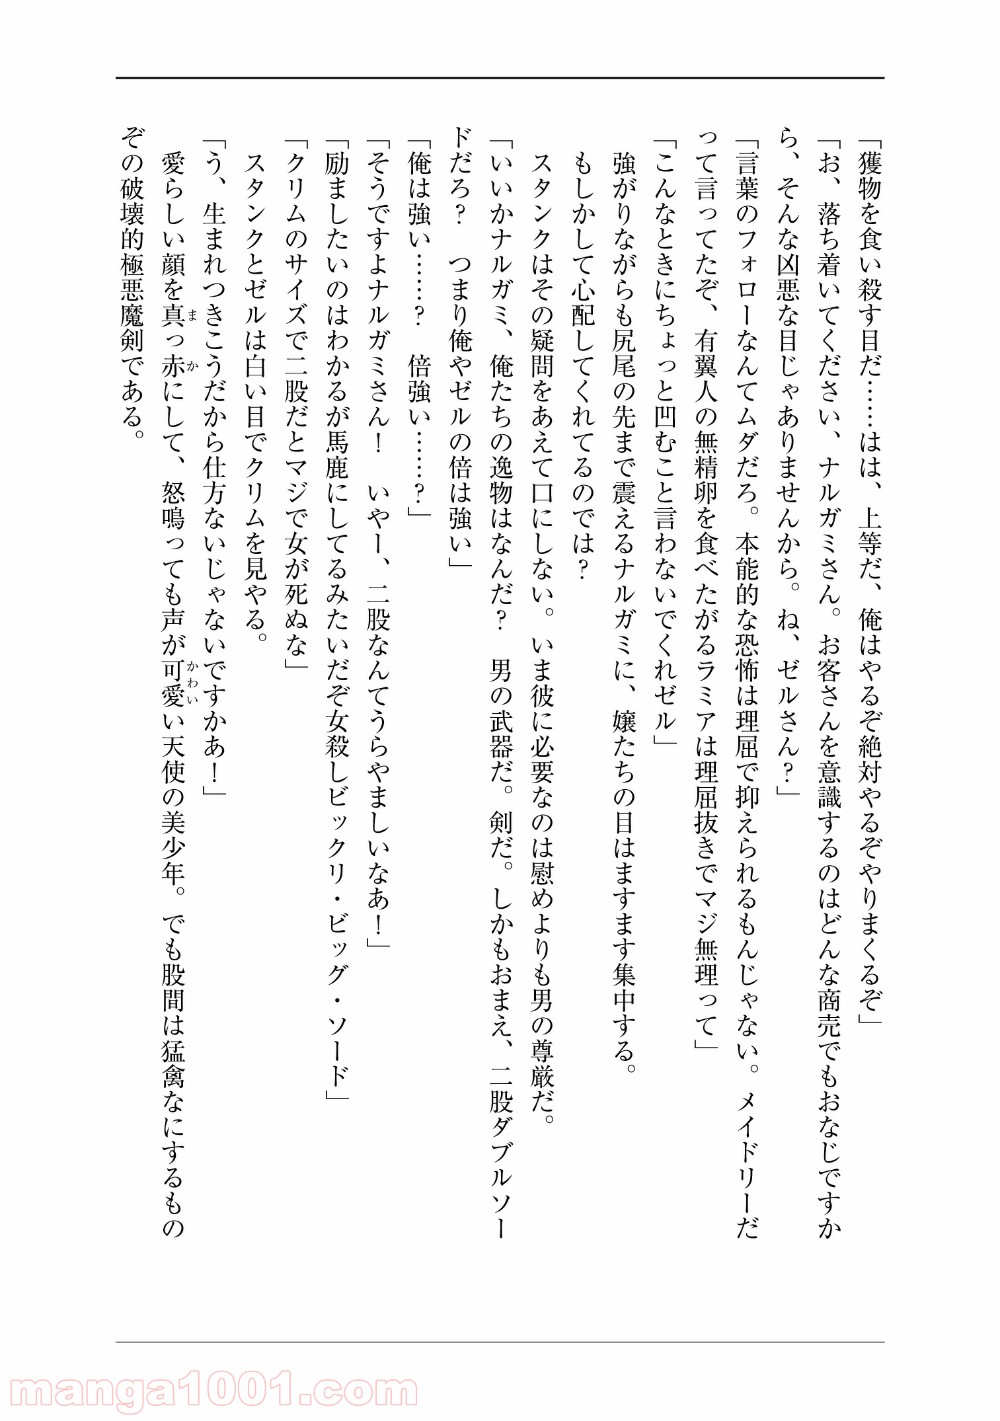 「獲物を食い殺す目だ……はは、上等だ、俺はやるぞ絶対やるぞやりまくるぞ」
「お、落ち着いてください、ナルガミさん。お客さんを意識するのはどんな商売でもおなじですか
ら、そんな凶悪な目じゃありませんから。ね、ゼルさん?」
「言葉のフォローなんてムダだろ。本能的な恐怖は理屈で抑えられるもんじゃない。メイドリーだ
って言ってたぞ、有翼人の無精卵を食べたがるラミアは理屈抜きでマジ無理って」
「こんなときにちょっと凹むこと言わないでくれゼル」
強がりながらも尻尾の先まで震えるナルガミに、嬢たちの目はますます集中する。
もしかして心配してくれてるのでは?
スタンクはその疑問をあえて口にしない。いま彼に必要なのは慰めよりも男の尊厳だ。
「いいかナルガミ、俺たちの逸物はなんだ? 男の武器だ。剣だ。しかもおまえ、二股ダブルソー
ドだろ? つまり俺やゼルの倍は強い」
「俺は強い……? 倍強い……?」
「そうですよナルガミさん! いやー、二股なんてうらやましいなあ!」
「励ましたいのはわかるが馬鹿にしてるみたいだぞ女殺しビックリ・ビッグ・ソード」
「クリムのサイズで二股だとマジで女が死ぬな」
スタンクとゼルは白い目でクリムを見やる。
「う、生まれつきこうだから仕方ないじゃないですかあ!」
愛らしい顔を真っ赤にして、怒鳴っても声が可愛い天使の美少年。でも股間は猛禽なにするもの
ぞの破壊的極悪魔剣である。
まか
かわい
manga1001.com